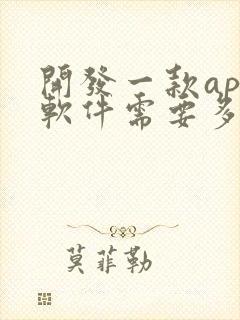 開發一款ap
軟件需要多
莫菲勒